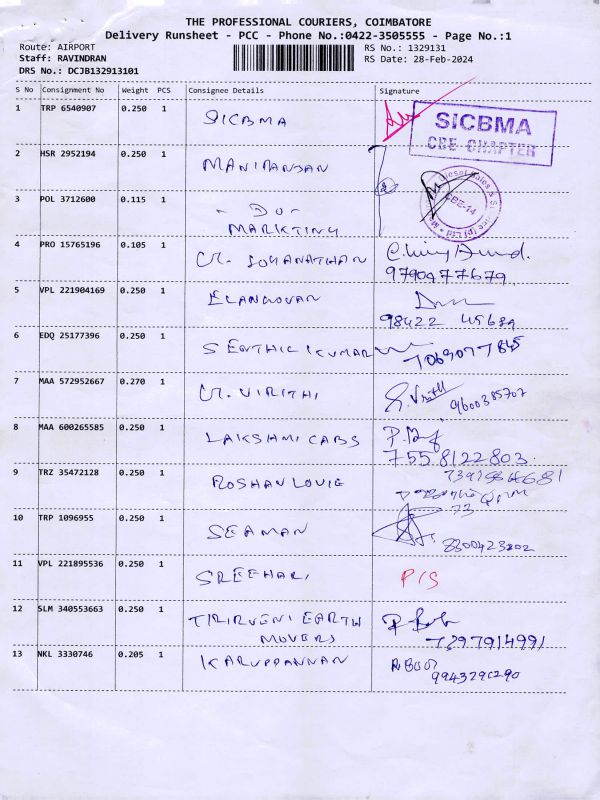 THE PROFESSIONAL COURIERS, COIMBATORE
Delivery Runsheet - PCC - Phone No.:0422-3505555 - Page No.:1
Route: AIRPORT RS No.: 1329131
Staff: RAVINDRAN RS Date: 28-Feb-2024
DRS No.: DCJB132913101
S No Consignment No Weight PCS Consignee Details Signature
1 TRP 6540907 0.250 1 SICBMA
SICBMA
CBE-CHAPTER
2 HSR 2952194 0.250 1 MANIPANSAN
3 POL 3712600 0.115 1 - DO -
MARKTING
CBE-14
4 PRO 15765196 0.105 1
9790977679
5 VPL 221904169 0.250 1 ELANGOVAN
98422
6 EDQ 25177396 0.250 1 SENTHIL KUMAR
7 MAA 572952667 0.270 1 VIRITHI
9600385707
8 MAA 600265585 0.250 1 LAKSHMI CABS
7558122803
9 TRZ 35472128 0.250 1 ROSHAN LOVIE
10 TRP 1096955 0.250 1 SEAMAN
11 VPL 221895536 0.250 1 SREEHARI P/S
12 SLM 340553663 0.250 1 TRIRVENI EARTH
MOVERS
7397914991
13 NKL 3330746 0.205 1 KARUPPANNAN
9943290290